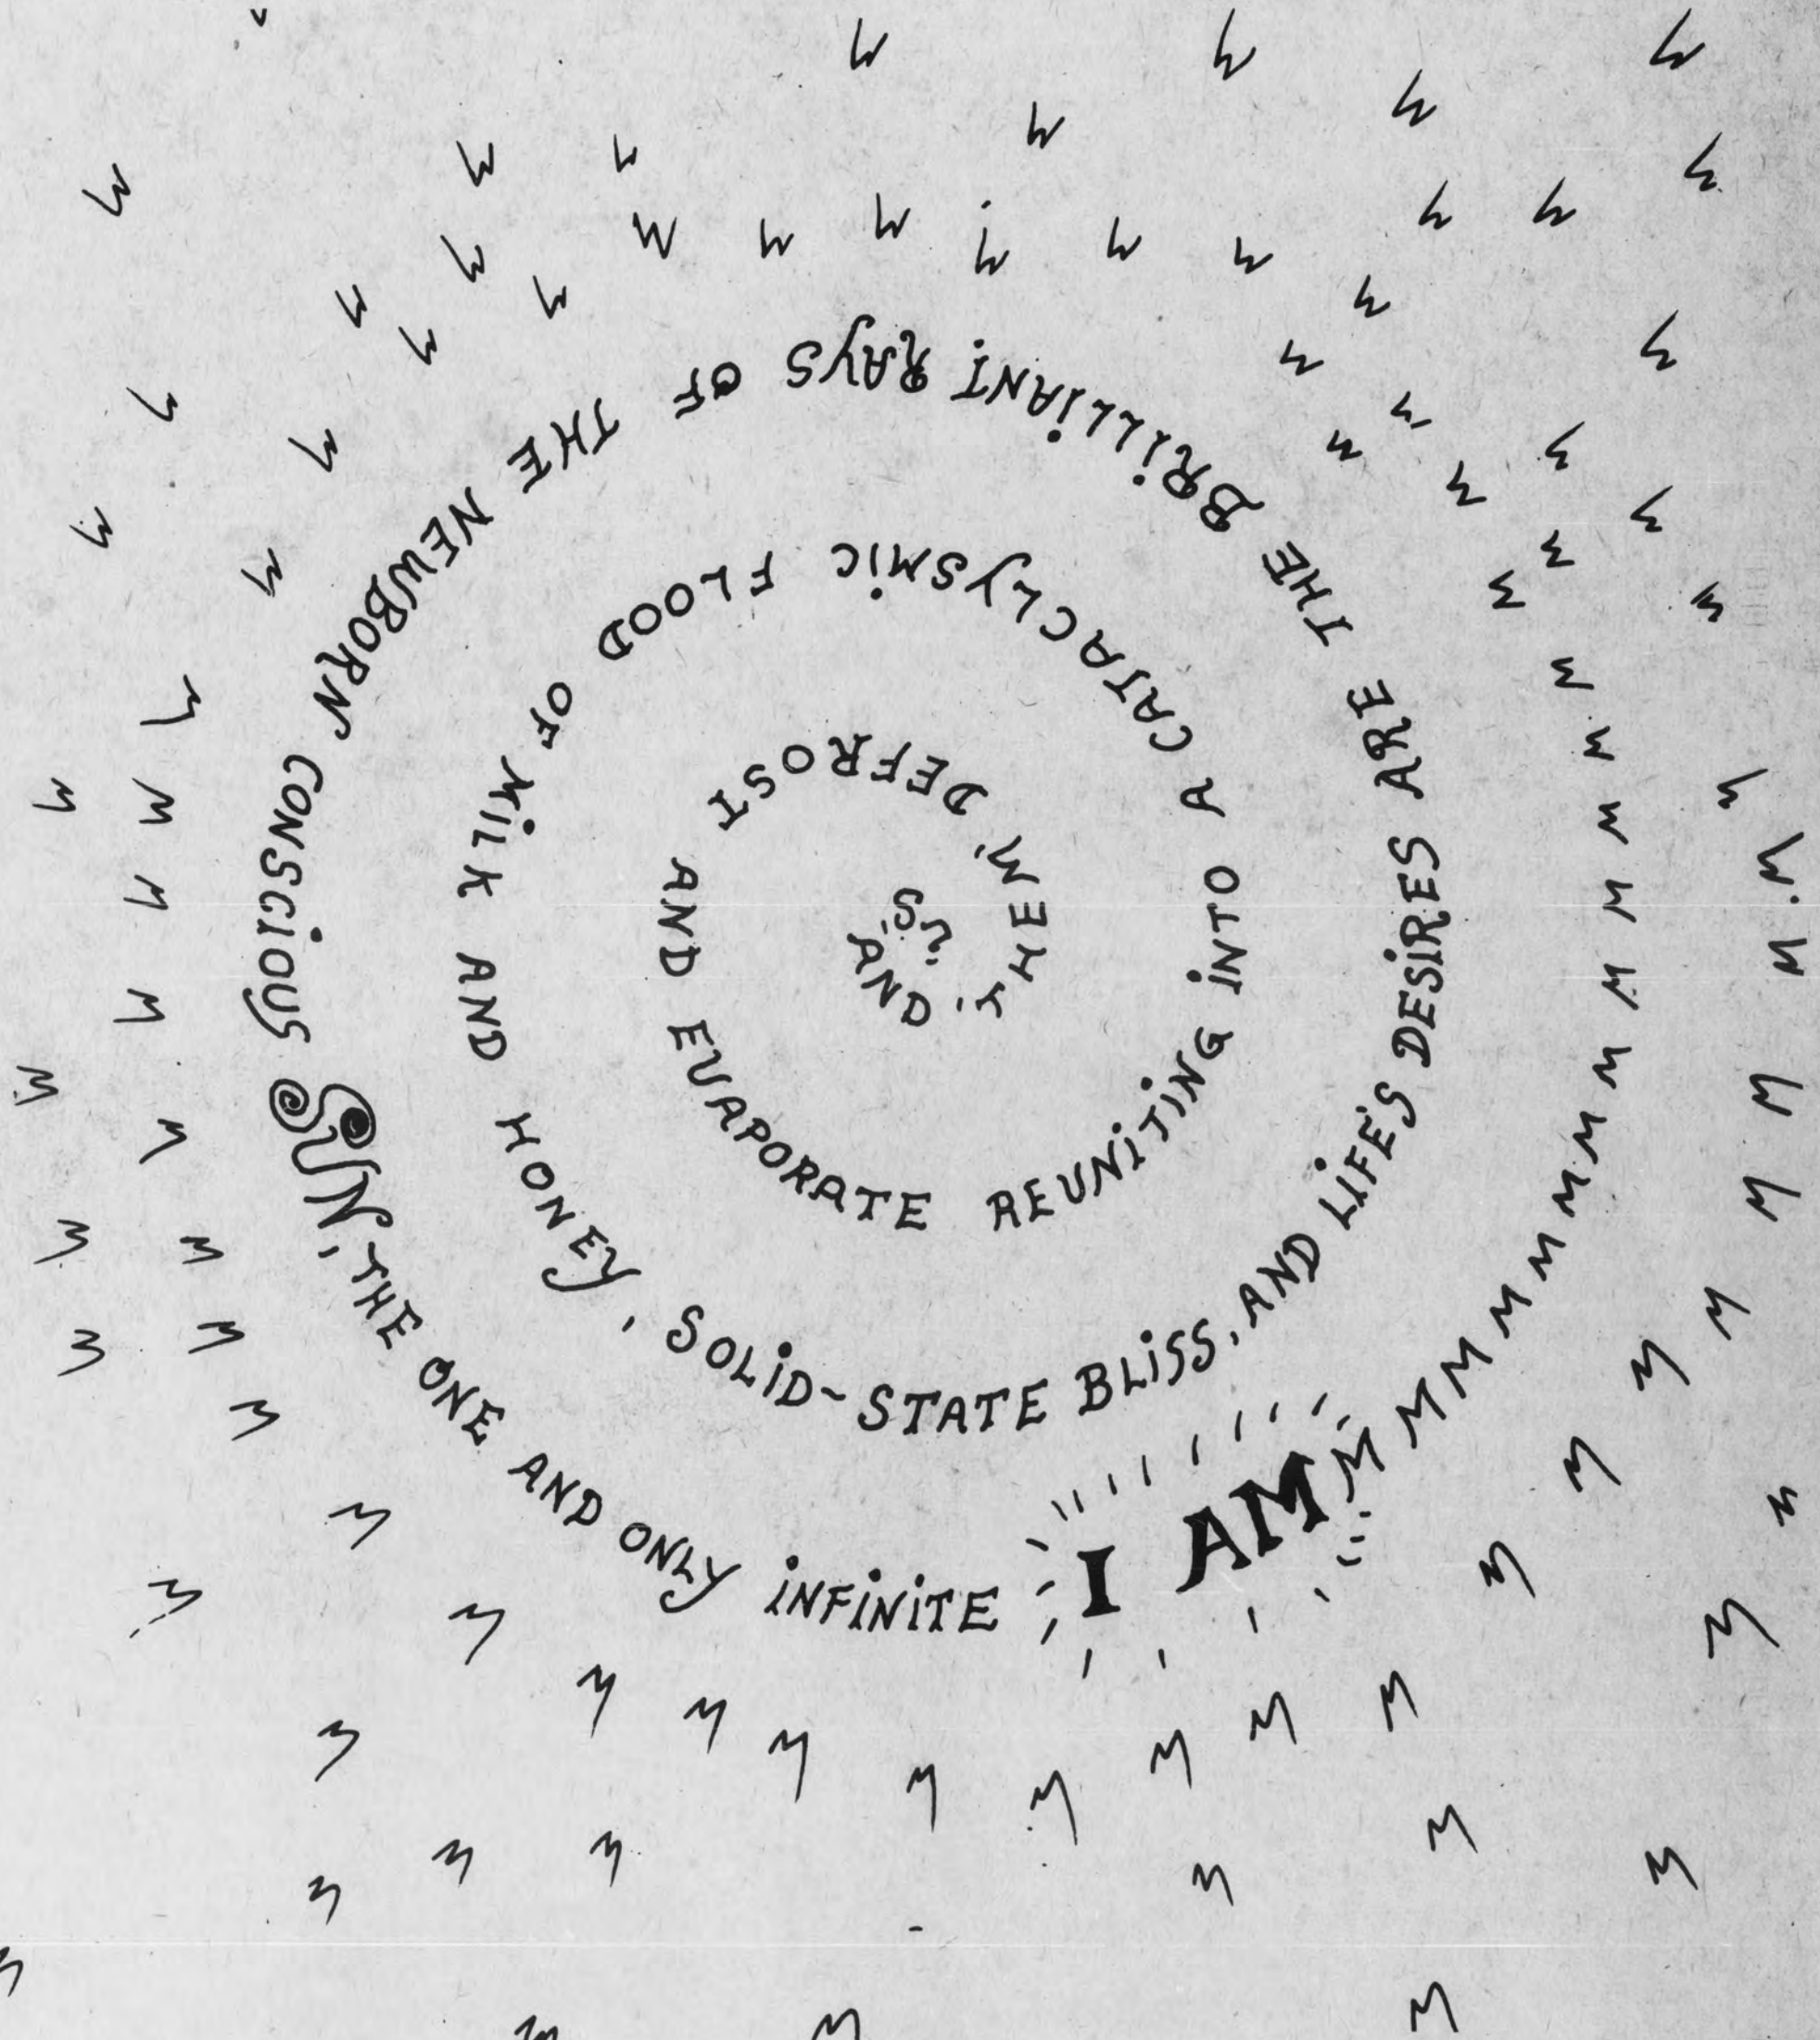 'US' AND 'THEM' DEFROST AND EVAPORATE REUNITING INTO A CATACLYSMIC FLOOD OF MILK AND HONEY, SOLID-STATE BLISS, AND LIFE'S DESIRES ARE THE BRILLIANT RAYS OF THE NEWBORN CONSCIOUS SUN, THE ONE AND ONLY INFINITE I AM M M M M M M M M M M M M M M M M M M M M M M M M M M M M M M M M M M M M M M M M M M M M M M M M M